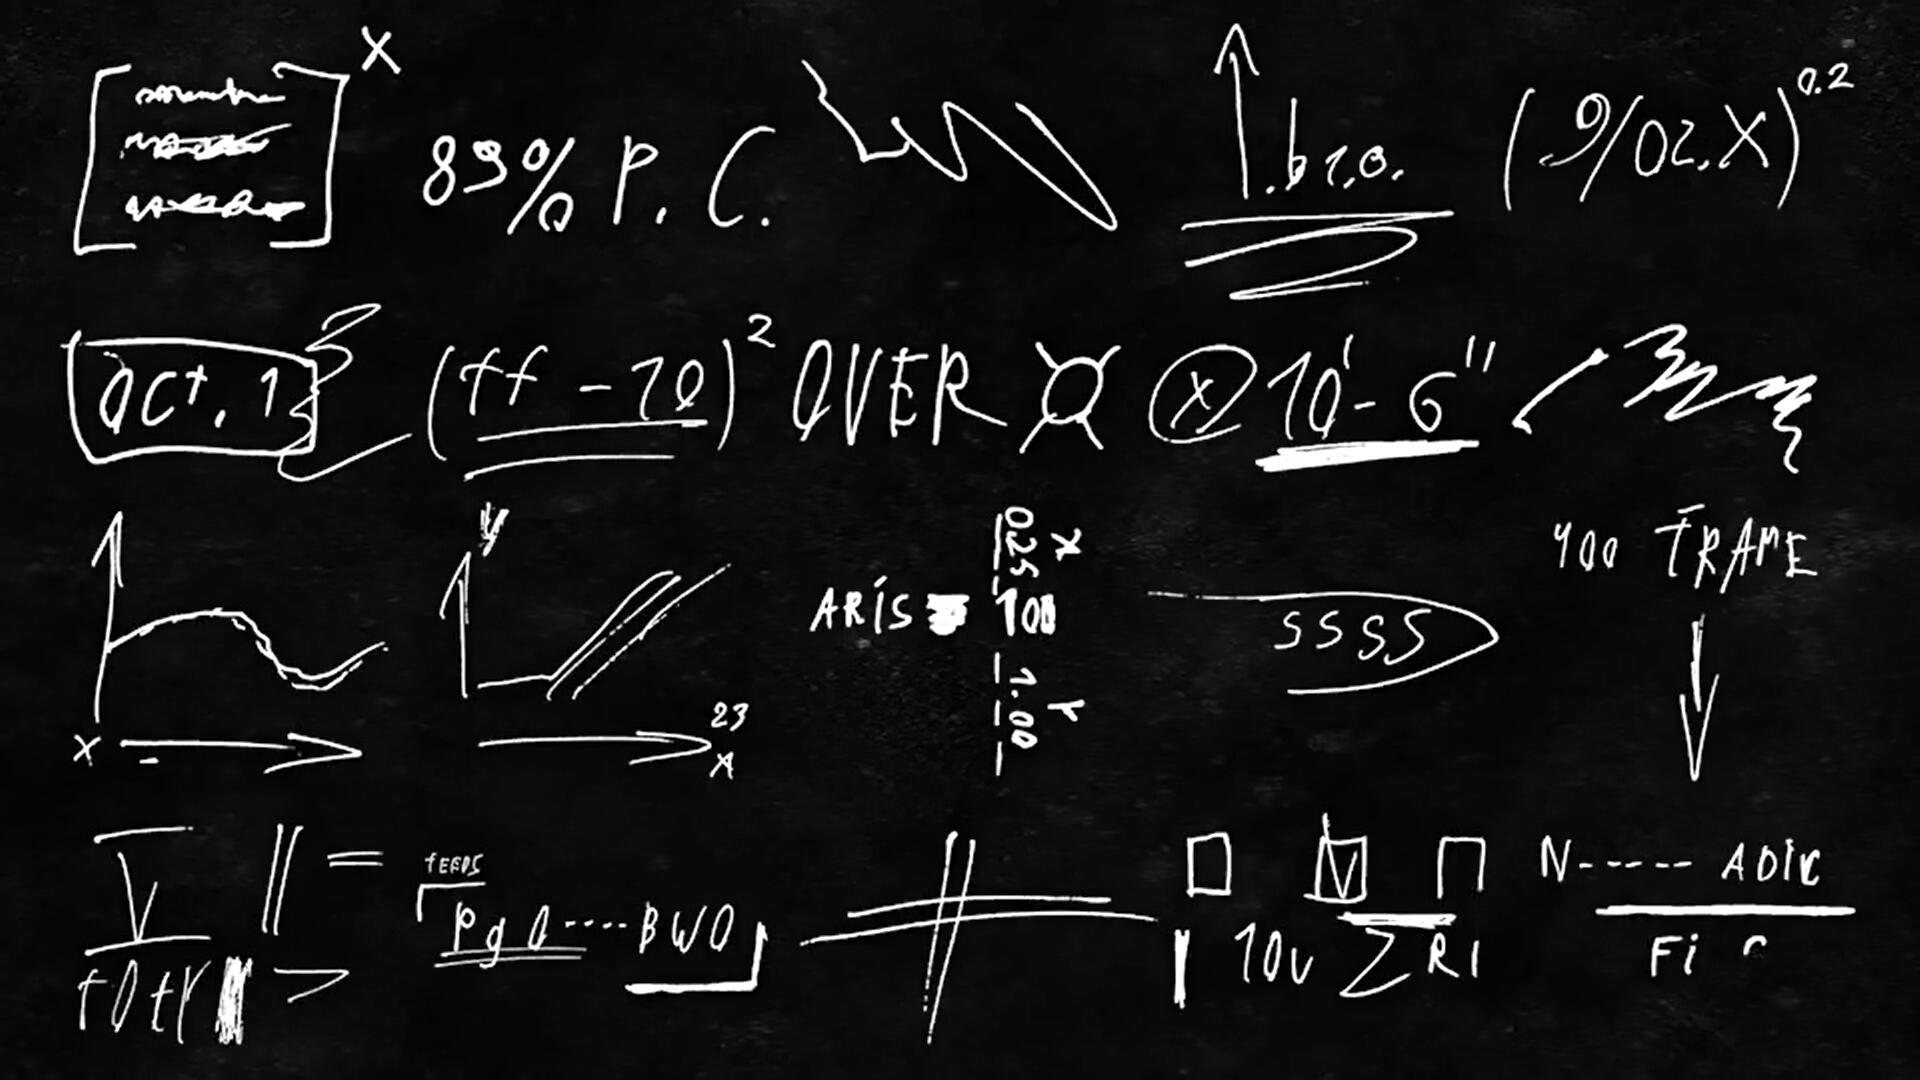 X
89% P. C. .b r.o. (.9/02.X)^0.2
Oct. 1 (ff - 10)² OVER ⓧ 10' - 6"
y
ARIS 0.25 X 100 1.00 Y
SSSS
400 FRAME
X 23 X
V
FEEDS
Pg 0 ---- BWO
V
10v Σ R1
N----- ADIC
Fi